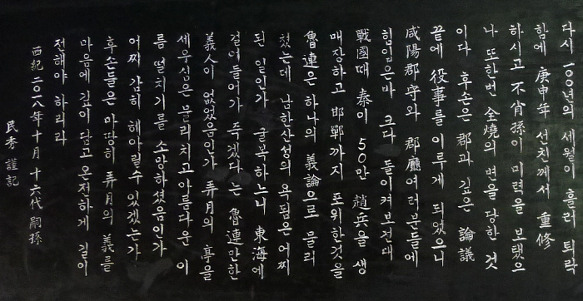 다시 一00년의 세월이 흘러 퇴락
함에 庚申年 선친께서 重修
하시고 不肖孫이 미력을 보탰으
나 또한번 全燒의 변을 당한 것
이다 후손은 郡과 깊은 論議
끝에 役事를 이르게 되었으니
咸陽郡守와 郡廳여러분들에
힘입은바 크다 돌이켜보건대
戰國때 秦이 50만 趙兵을 생
매장하고 邯鄲까지 포위한것을
魯連은 하나의 義論으로 물리
쳤는데 남한산성의 욕됨은 어찌
된 일인가 굴복하느니 東海에
걸어들어가 죽겠다는 魯連만한
義人이 없었음인가 弄月의 亭을
세우심은 물리치고아름다운 이
름 떨치기를 소망하셨음인가
어찌 감히 헤아릴수있겠는가
후손들은 마땅히 弄月의 義를
마음에 깊이 담고 온전하게 길이
전해야 하리라
西紀 二0一八年 十月 十六代 嗣孫
民孝 謹記